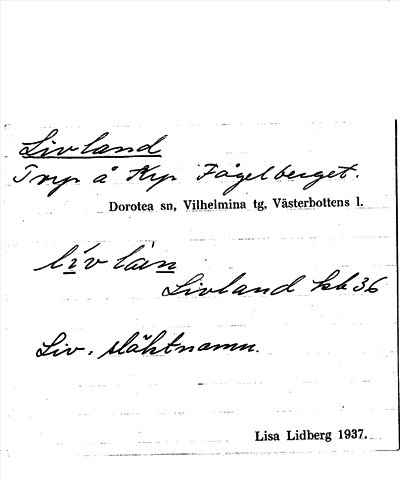 Livland
Trp å Krp Fågelberget.
Dorotea sn, Vilhelmina tg, Västerbottens l.
lı́v làn
Livland kk 36
Liv, släktnamn.
Lisa Lidberg 1937.